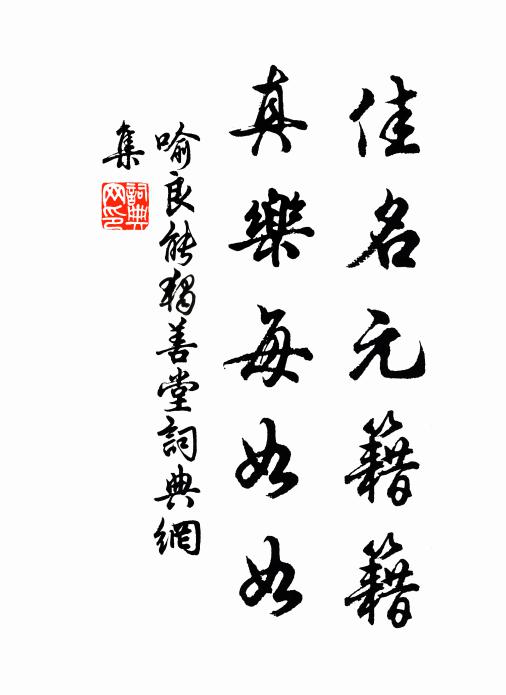 佳名元籍籍
真樂每如如
喻良能獨善堂詞典網
集
詞典網印